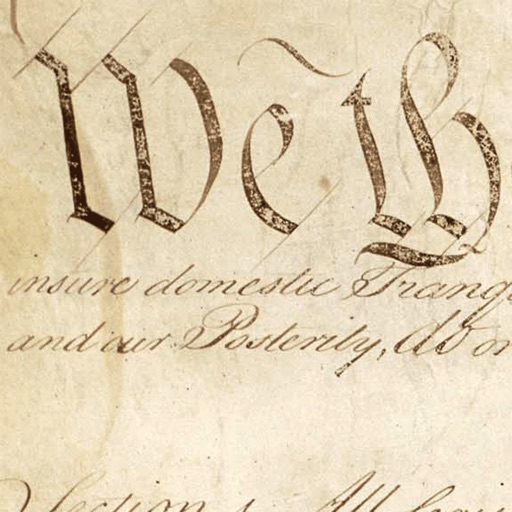 We th
insure domestic Tranq
and our Posterity, do or
Section 1. All legis